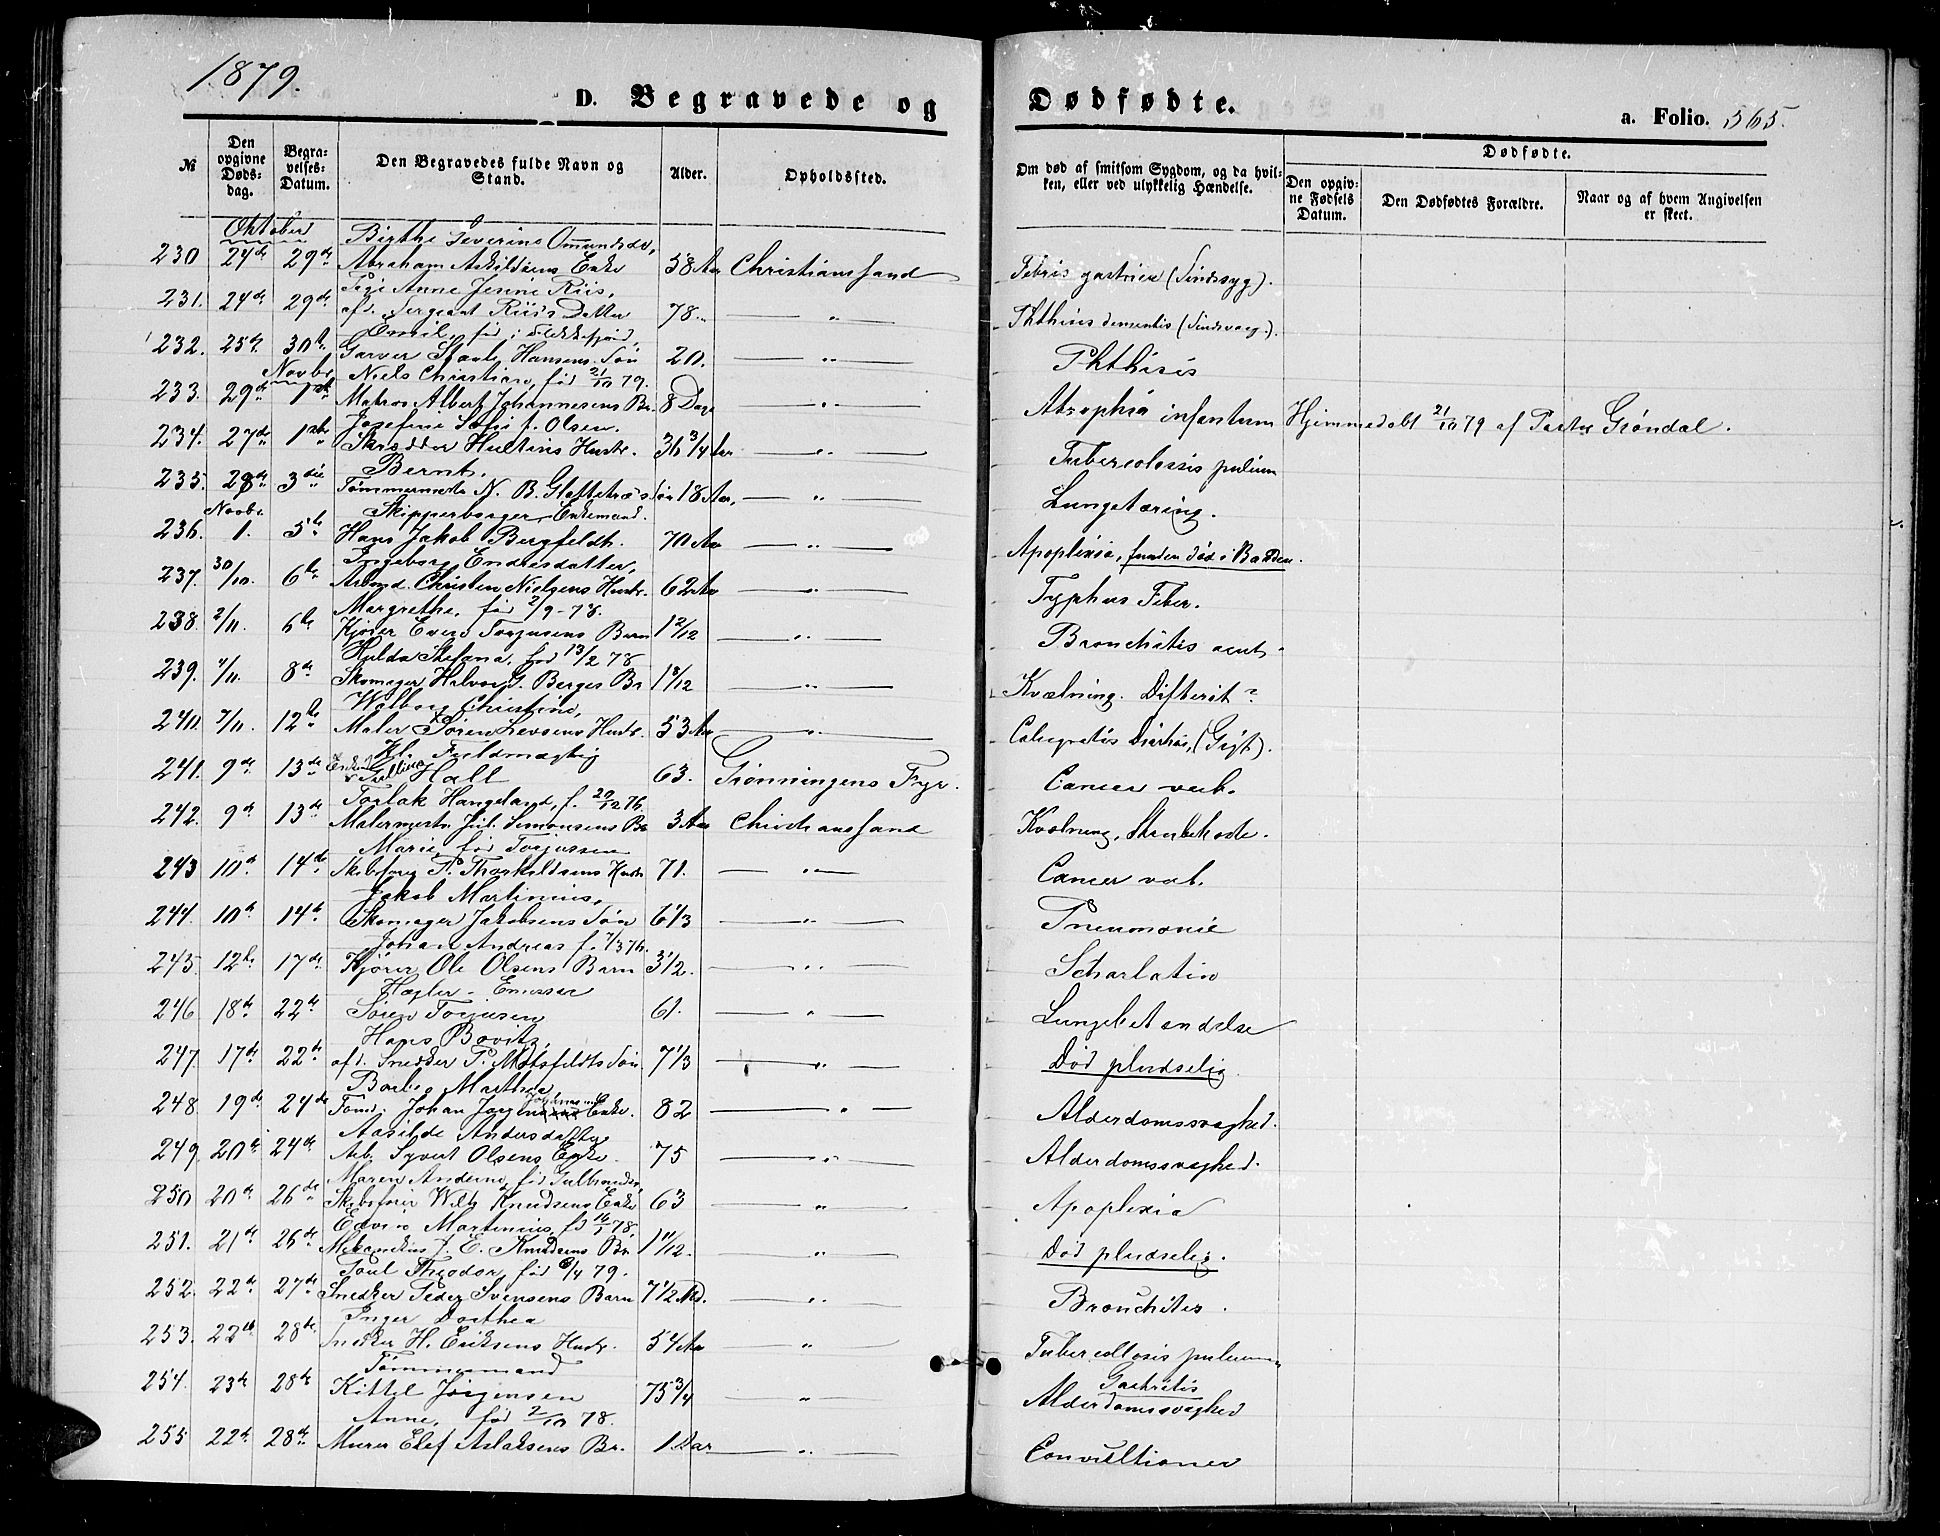 1879.
D. Begravede og Dødfødte.
a. Folio. 565.
№ Den opgivne Dødsdag. Begravelses-Datum. Den Begravedes fulde Navn og Stand. Alder. Opholdssted. Om død af smitsom Sygdom, og da hvilken, eller ved ulykkelig Hændelse. Dødfødte.
Den opgivne Fødsels Datum. Den Dødfødtes Forældre. Naar og af hvem Angivelsen er skeet.
Oktober Birthe Severine Omundsdr,
230 24de 29de Abraham Askildsens Enke 58 Aar Christianssand Febris gastrica (Sindssyg).
Pige Anne Jenine Riis,
231. 24de 29de afd. Sergeant Riis's Datter 78. — " — Phthisis dementis (Sindssvag).
Emil, fød i Flekkefjord,
232. 25de 30te Garver Staale Hansens Søn 20. — " — Phthisis
Novbr Niels Christian, fød 21/10 79.
233. 29de 1ste Matros Albert Johannesens Br. 8 Dage — " — Atrophia infantum Hjemmedøbt 21/10 79 af Pastor Grøndal.
Josefine Sofie f. Olsen.
234. 27de 1ste Skrædder Hultins Hustr. 36 3/4 Aar — " — Tuberculossis pulium
Bernt,
235. 28de 3die Tømmermester N. B. Glattetræs Søn 18 Aar, — " — Lungetæring.
Novbr Skipperborger, Enkemand.
236. 1. 5te Hans Jakob Bergfeldt. 70 Aar — " — Apoplexia, funden død i Badden.
Ingeborg Endresdatter,
237. 30/10. 6te Arbmd. Christen Nielsens Hustr. 62 Aar — " — Typhus Feber.
Margrethe, fød 2/9 - 78.
238. 2/11. 6te Kjører Everd Torjusens Barn 1 2/12 — " — Bronchitis acut.
Hulda Stefana, fød 13/2 78
239. 4/11. 8de Skomager Halvor G. Berges Br 1 8/12 — " — Kvælning. Difterit?
Walborg Christine,
240. 7/11. 12te Maler Søren Levsens Hustr. 53 Aar — " — Diarhoe, (Gigt).
Kl. Fuldmægtig
241. 9de 13de Hall 63. Grønningens Fyr. Cancer
Torlak Hangeland, f. 20/12 76.
242. 9de 13de Malermestr Jul. Simonsens Br 3 Aar Christianssand Kvælning, Strubehoste.
Marie, fød Torjussen
243 10de 14de Skibsfører T. Thorkildsens Hustr 71. — " — Cancer
Jakob Martinius,
244. 10de 14de Skomager Jakobsens Søn 6 1/3 — " — Pneumonie
Johan Andreas f. 7/3 76.
245. 12te 17de Kjører Ole Olsens Barn 3 1/2. — " — Scharlatin
Hægler - Enkemand
246 18de 22de Søren Torjusen 61. — " — Lungebetændelse
Hans Bovitz,
247. 17de 22de afd. Snedker P. Motzfeldts Søn 7 1/3 — " — Død pludselig.
Barbro Marthea
248. 19de 24de Tømd. Johan Enke. 82 — " — Alderdomssvaghed.
Aasilde Andersdatter
249. 20de 24de Arb. Syvert Olsens Enke. 75 — " — Alderdomssvaghed.
Maren Andrine, fød Gulbrandsen,
250 20de 26de Skibsfører Wilh. Knudsens Enke 63 — " — Apoplexia
Edvin Martinius, fd 16/1 78,
251. 21de 26de Mekanikus J. E. Knudsens Br. 1 11/12. — " — Død pludselig.
Poul Theodor, fød 6/4 79.
252. 22de 27de Snedker Peder Svensens Barn 7 1/2 Md. — " — Bronchites.
Inger Dorthea
253. 22de 28de Snedker H. Eriksens Hustr. 54 Aar — " — Tuberculosis pulium
Tømmermand
254. 23de 28de Kittil Jørgensen 75 3/4 " Gastritis Alderdomssvaghed
Anne, fød 2/10 78.
255 22de 28de Murer Elef Aslaksens Br. 1 Aar — " — Convultioner